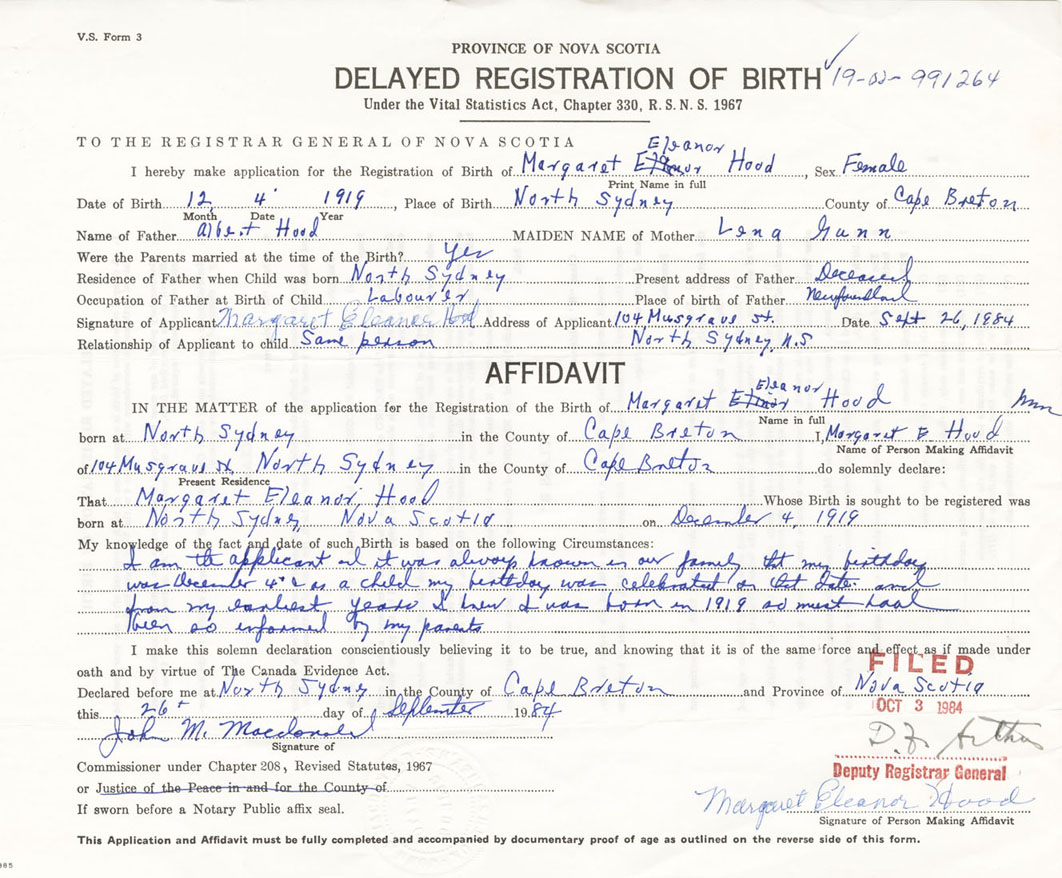 V.S. Form 3
PROVINCE OF NOVA SCOTIA
DELAYED REGISTRATION OF BIRTH 19-02-991264
Under the Vital Statistics Act, Chapter 330, R.S.N.S. 1967
TO THE REGISTRAR GENERAL OF NOVA SCOTIA
Eleanor
I hereby make application for the Registration of Birth of Margaret Elinor Hood, Sex Female
Print Name in full
Date of Birth 12 4 1919, Place of Birth North Sydney County of Cape Breton
Month Date Year
Name of Father Albert Hood MAIDEN NAME of Mother Lena Gunn
Were the Parents married at the time of the Birth? Yes
Residence of Father when Child was born North Sydney Present address of Father Deceased
Occupation of Father at Birth of Child Labourer Place of birth of Father Newfoundland
Signature of Applicant Margaret Eleanor Hood Address of Applicant 104 Musgrave St. Date Sept 26, 1984
Relationship of Applicant to child Same person North Sydney, N.S
AFFIDAVIT
Eleanor
IN THE MATTER of the application for the Registration of the Birth of Margaret Elinor Hood
Name in full
born at North Sydney in the County of Cape Breton I, Margaret E. Hood
Name of Person Making Affidavit
of 104 Musgrave st, North Sydney in the County of Cape Breton do solemnly declare:
Present Residence
That Margaret Eleanor Hood Whose Birth is sought to be registered was
born at North Sydney, Nova Scotia on December 4, 1919
My knowledge of the fact and date of such Birth is based on the following Circumstances:
I am the applicant and it was always known in our family that my birthday
was December 4th as a child my birthday was celebrated on that date and
from my earliest years I knew I was born in 1919 so must have
been so informed by my parents
I make this solemn declaration conscientiously believing it to be true, and knowing that it is of the same force and effect as if made under
oath and by virtue of The Canada Evidence Act.
FILED
Declared before me at North Sydney in the County of Cape Breton and Province of Nova Scotia
this 26th day of September 1984
OCT 3 1984
John M. Macdonald
Signature of
D.F. Arthur
Commissioner under Chapter 208, Revised Statutes, 1967
Deputy Registrar General
or Justice of the Peace in and for the County of
If sworn before a Notary Public affix seal.
Margaret Eleanor Hood
Signature of Person Making Affidavit
This Application and Affidavit must be fully completed and accompanied by documentary proof of age as outlined on the reverse side of this form.